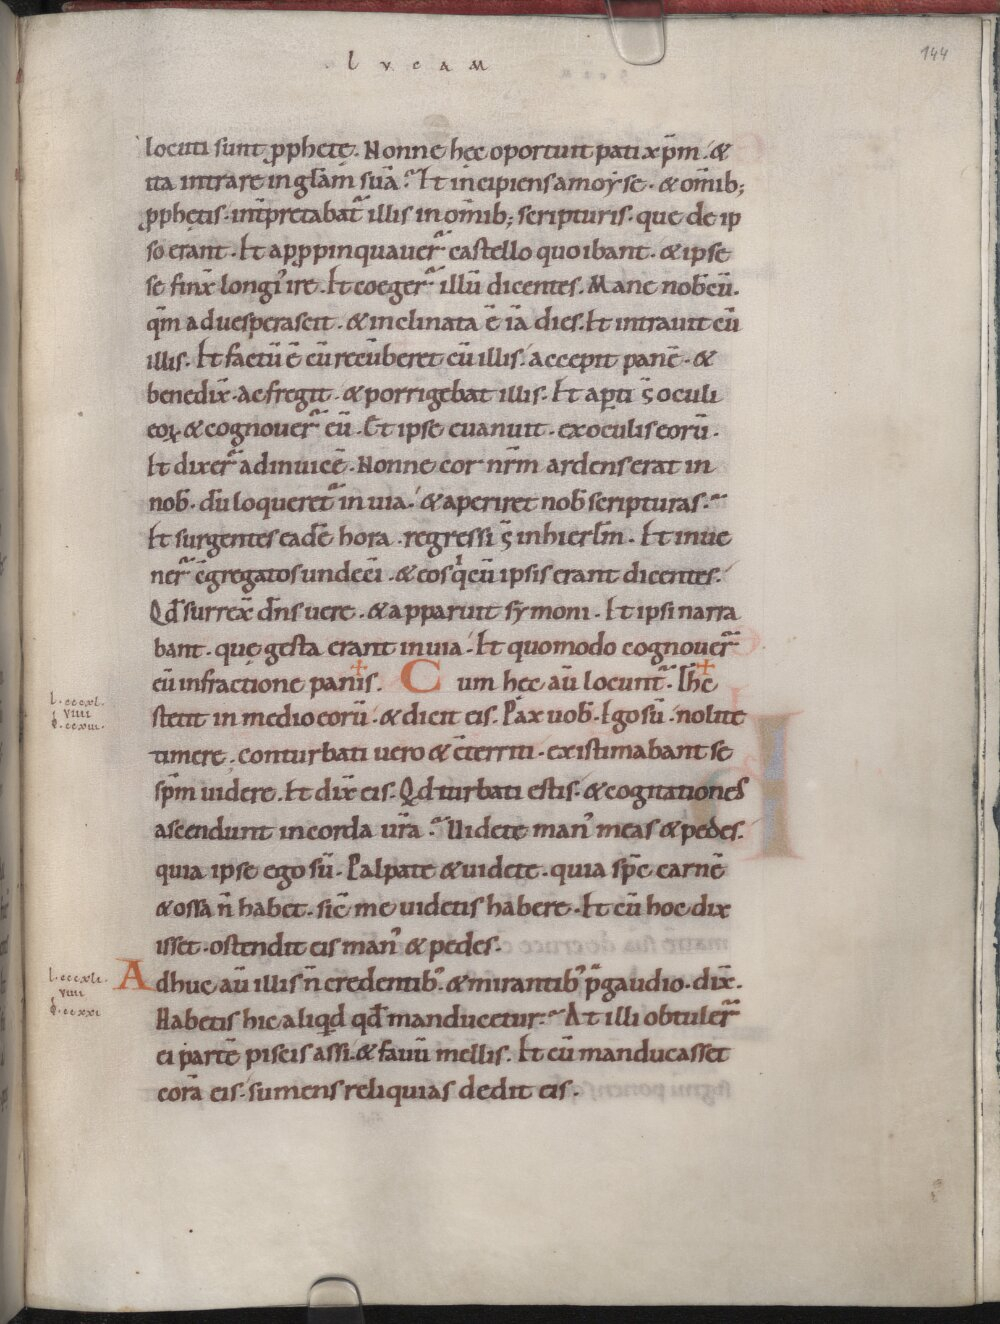 LVCAM
144
locuti sunt ꝓphetę. Nonne hęc oportuit pati xp̄m. &
ita intrare in glām̄ suā? Et incipiens a moẏse. & om̄ib;
ꝓphetis. int̄pretabat̄ illis in om̄ib; scripturis. que de ip
so erant. Et apꝓpinquauer̄ castello quo ibant. & ipse
se finx̄ longi' ire. Et coeger̄ illū dicentes. Mane nob̄cū.
qm̄ aduesperascit. & inclinata ē iā dies. Et intrauit cū
illis. Et factū ē cū recūberet cū illis. accepit panē. &
benedix̄. ac fregit. & porrigebat illis. Et apti s̄ oculi
eoꝝ & cognouer̄ eū. Et ipse euanuit. ex oculis eorū.
Et dixer̄ adinuicē. Nonne cor nr̄m ardens erat in
nob̄. dū loqueret̄ in uia. & aperiret nob̄ scripturas?
Et surgentes eadē hora. regressi s̄ in hierl̄m. Et inue
ner̄ c̄gregatos undeci. & eos qͥ cū ipsis erant dicentes.
Qd̄ surrex̄ dn̄s uere. & apparuit sẏmoni. Et ipsi narra
bant. que gesta erant in uia. Et quomodo cognouer̄
eū in fractione panis. Cum hęc aū locunt̄. Ih̄c
l. cccxl.
viiii
stetit in medio eorū. & dicit eis. Pax uob̄. Ego sū. nolite
timere. conturbati uero & c̄territi. existimabant se
sp̄m uidere. Et dix̄ eis. Qd turbati estis. & cogitationes
ascendunt in corda ur̄a? Uidete man' meas & pedes.
quia ipse ego sū. Palpate & uidete. quia sp̄c carnē
& ossa n̄ habet. sic̄ me uidetis habere. Et cū hoc dix
isset. ostendit eis man' & pedes.
l. cccxli.
viiii
Adhuc aū illis n̄ credentib' & mirantib' p̄ gaudio. dix̄.
Habetis hic aliqͥd qd̄ manducetur? At illi obtuler̄
ei partē piscis assi. & fauū mellis. Et cū manducasset
corā eis. sumens reliquias dedit eis.